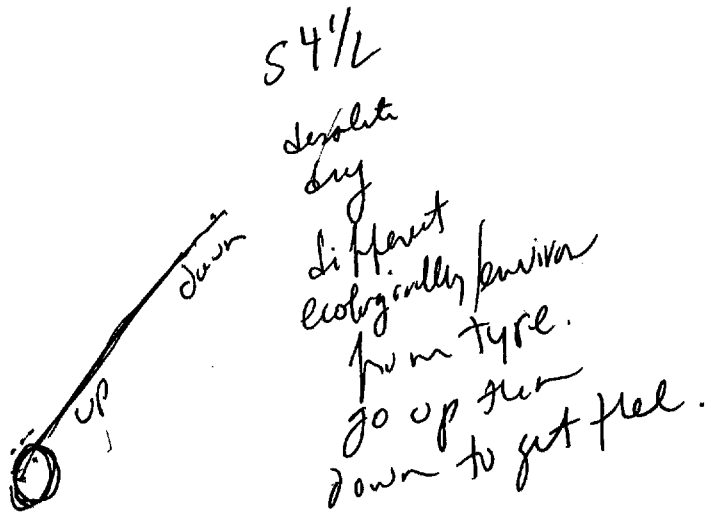 S 4 1/2
desolate
dry
different
ecologically/environ
from type.
go up then
down to get
down
up